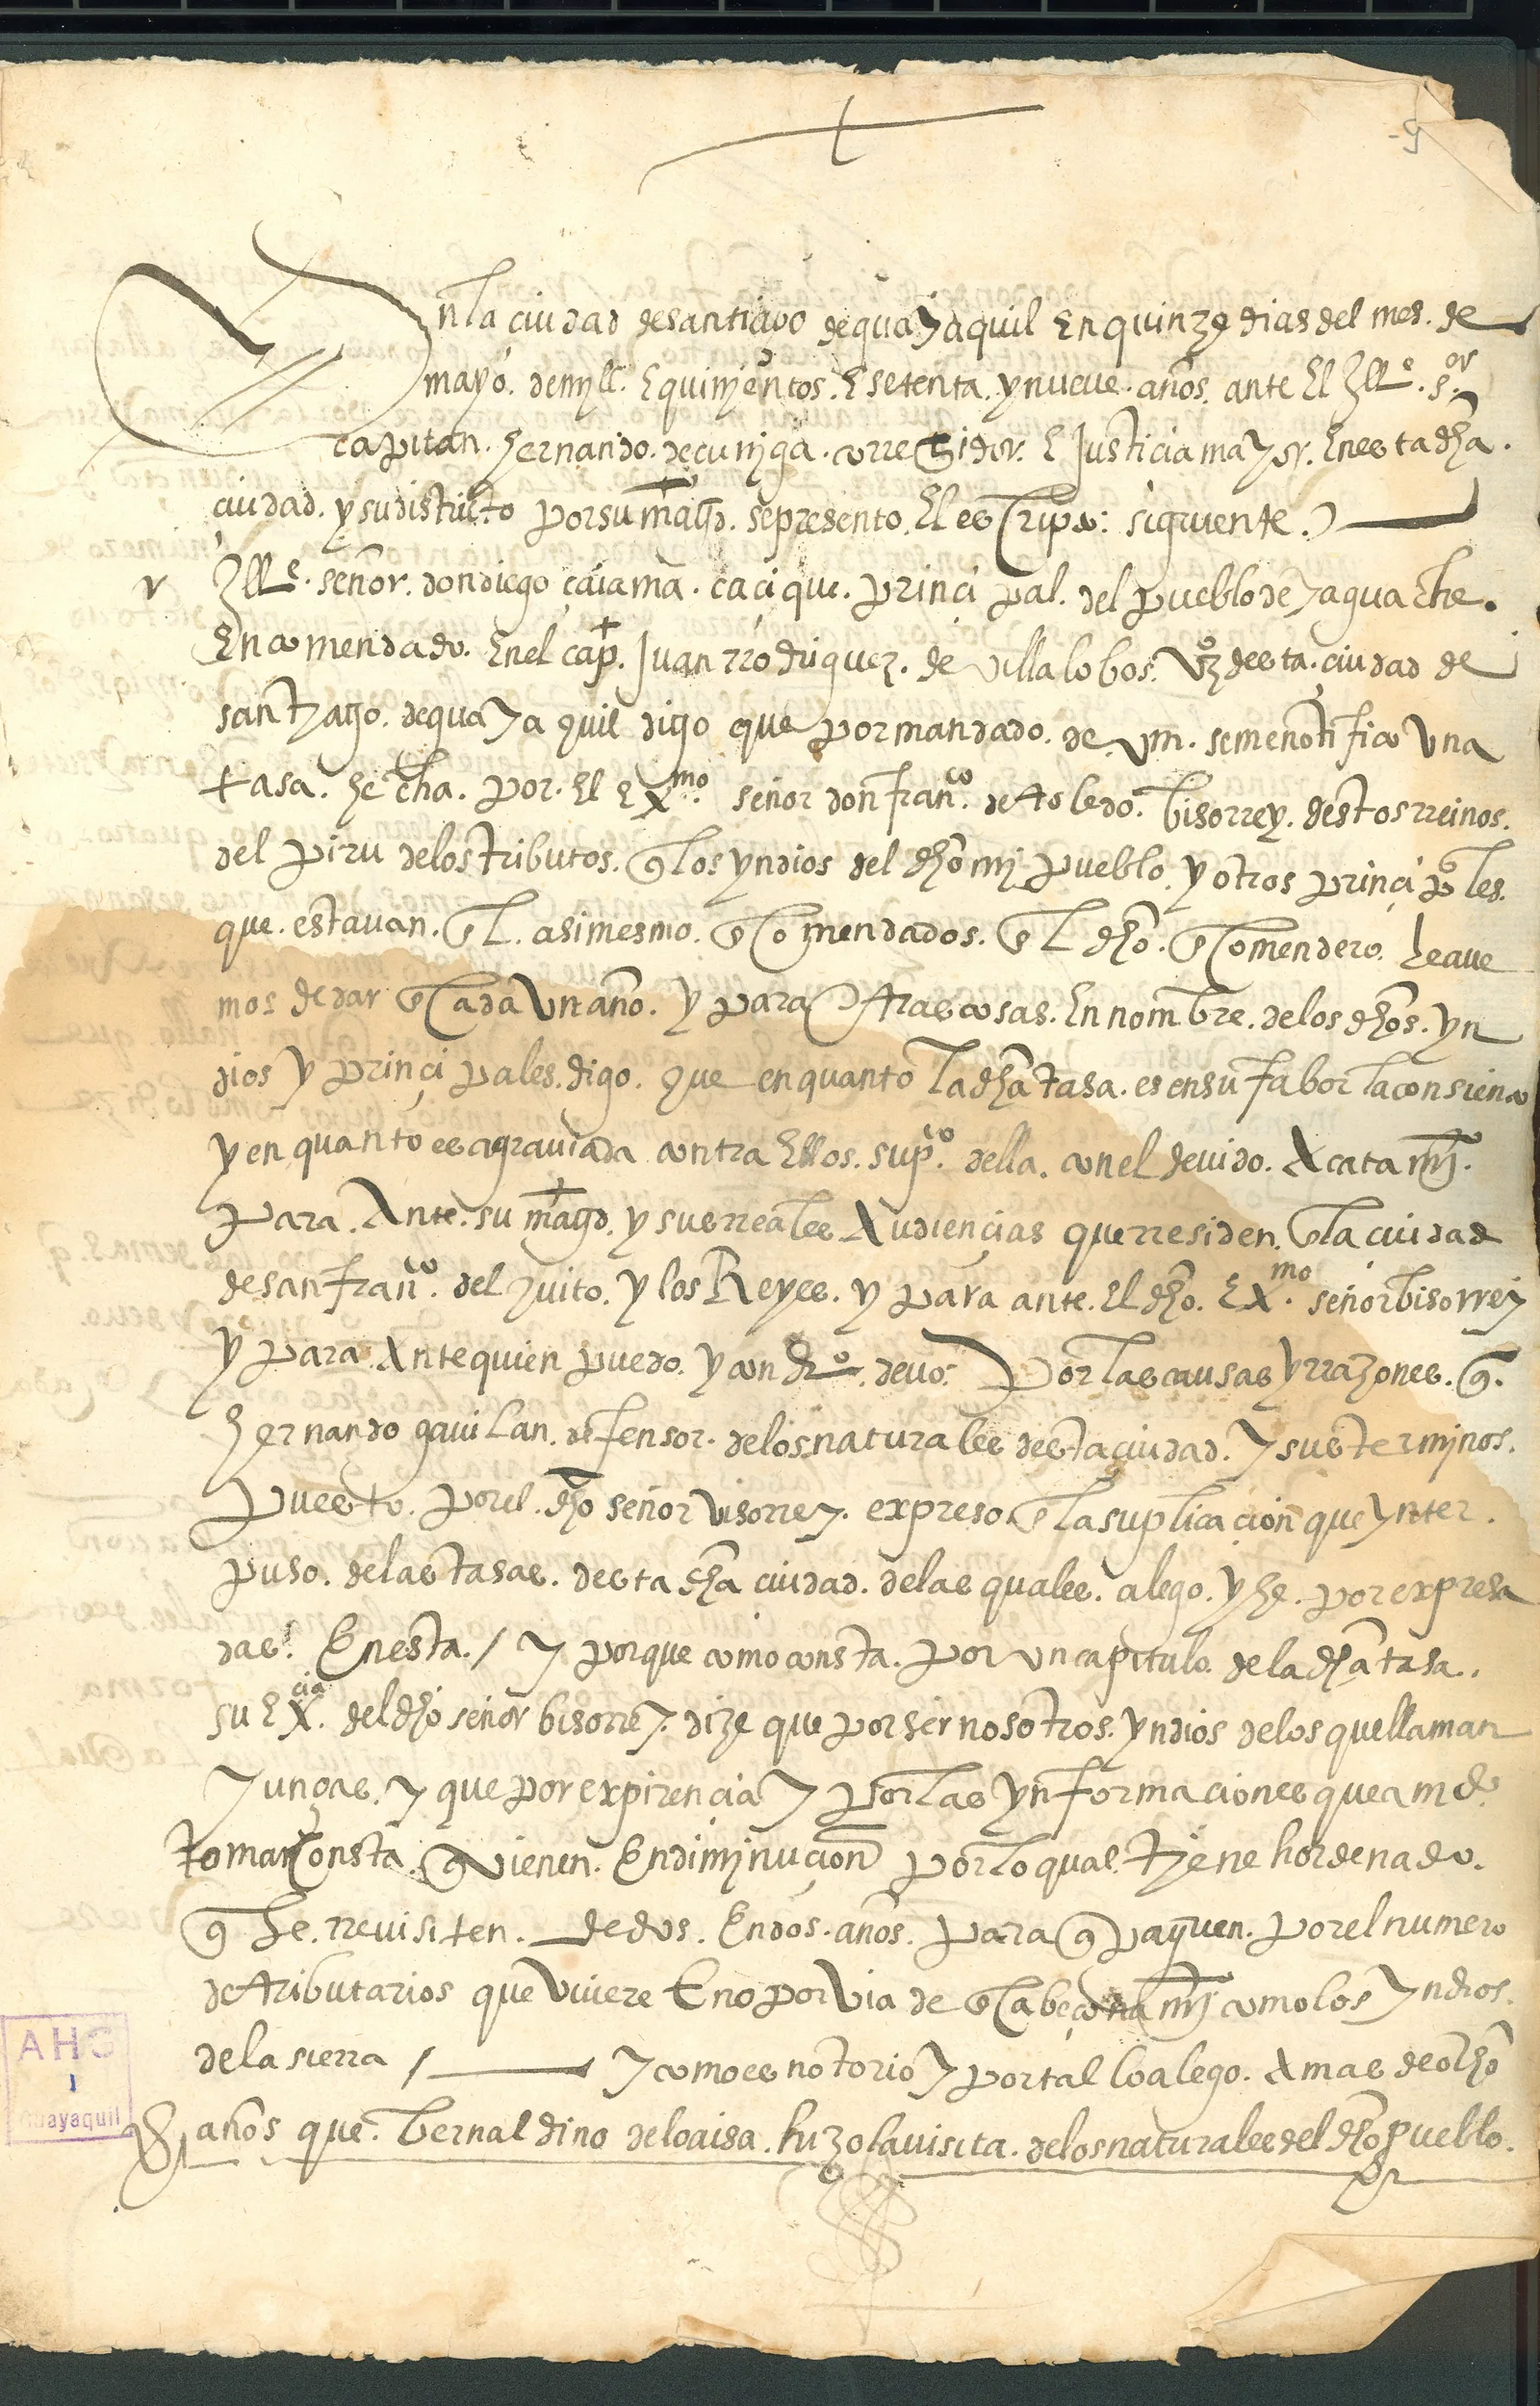 5
En la ciudad de santiago de guayaquil En quinze dias del mes. de
mayo. de myll. E quinientos. E setenta. y nueve. años. ante El Illᵉ. s.ᵒʳ
capitan. hernando. de cuñiga. corregidor. E Justicia mayor. En esta dha.
ciudad. y su districto por su magd. se presento. El escripto: siguiente.
Illᵉ. señor. don diego caiama. cacique. principal. del pueblo de yaguache.
Encomendado. En el cap. Juan rrodriguez. de villalobos. vzº desta. ciudad de
santyago. de guayaquil digo que por mandado. de vm. se me notifico una
tasa. hecha. por. El Exᵐᵒ. señor don franᶜᵒ. de toledo. bisorrey. destos rreinos.
del piru de los tributos. q los yndios del dho mi pueblo. y otros principˡᵉˢ.
que. estavan. en el. asimesmo. encomendados. en el dho. encomendero. le ave
mos de dar en cada un año. y para otras cosas. En nombre. de los dhos. yn
dios y principales. digo. que en quanto la dha tasa. es en su fabor la consiento
y en quanto es agraviada contra Ellos. supᶜᵒ. della. con el devido. Acatamᵒ.
Para. Ante. su magd. y sus rreales Audiencias que rresiden. en la ciudad
de san franᶜᵒ. del quito. y los Reyes. y para ante. El dho. Exᵐᵒ. señor bisorrey
y para Ante quien puedo. y con drº. devo. Por las causas y rrazones. q.
hernando gavilan. defensor. de los naturales desta ciudad. y sus terminos.
Puesto. por el. dho señor visorrey. expreso en la suplicacion que ynter.
puso. de las tasas. desta dha ciudad. de las quales. alego. y he. por expresa
das. En esta. / y porque como consta. por un capitulo. de la dha tasa.
su Exᶜⁱᵃ. del dho señor bisorrey. dize que por ser nosotros. yndios de los que llaman
yungas. y que por expirencia y por las ynformaciones que a mdº
tomar consta q vienen. En diminucion por lo qual. tyene hordenado.
q se. rrevisiten. de dos. En dos. años. para q paguen. por el numero
de tributarios que uviere E no por via de encabeçonamᵒ como los yndios.
de la sierra / y como es notorio y por tal lo alego. A mas de ocho
años que. bernaldino de loaisa. hizo la visita. de los naturales del dho pueblo.
AHG
1
Guayaquil